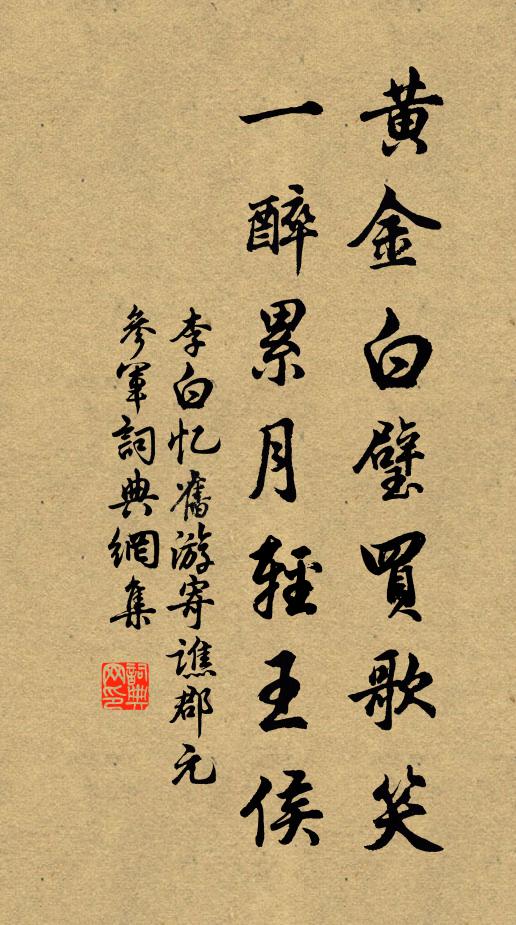 黃金白璧買歌笑
一醉累月輕王侯
李白忆舊游寄譙郡元
參軍詞典網集
詞典网印